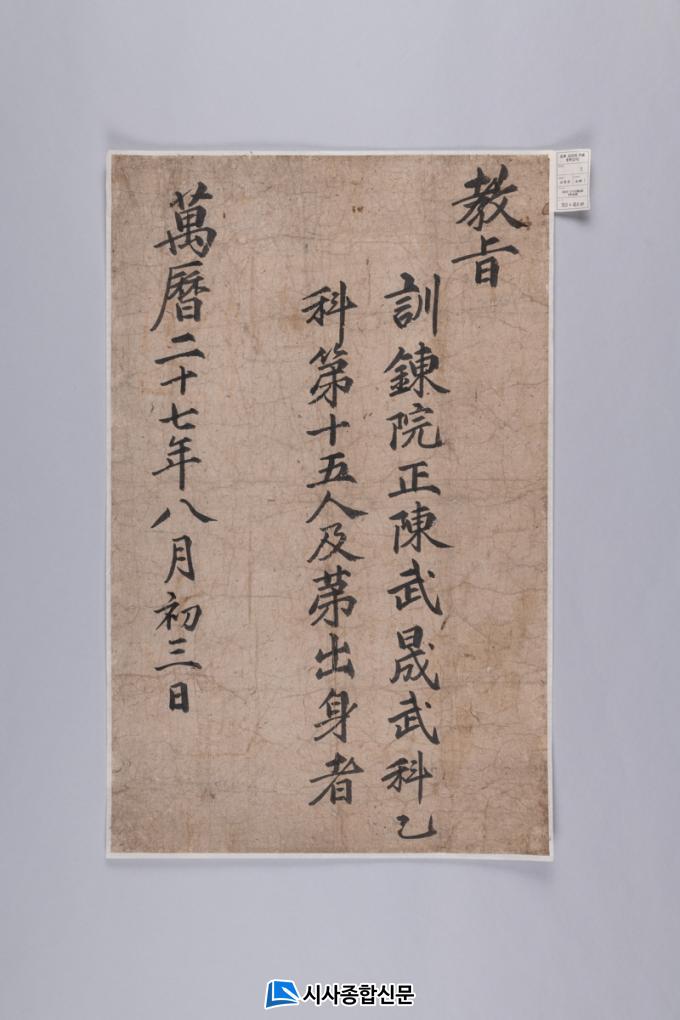 教旨
訓鍊院正陳武晟武科乙
科第十五人及苐出身者
萬曆二十七年八月初三日
시사종합신문